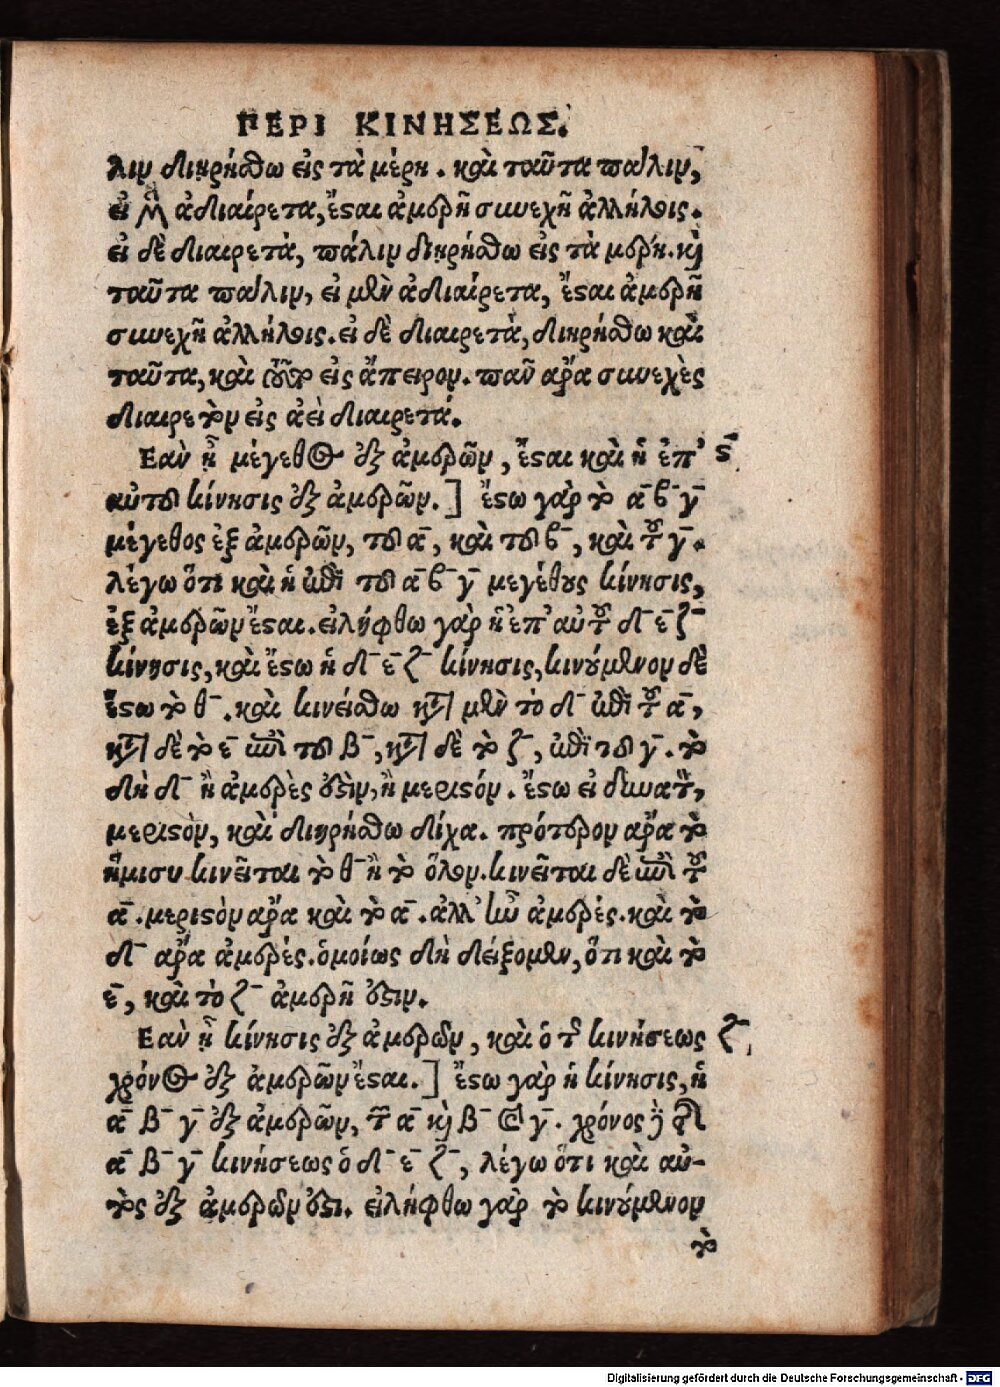 ΠΕΡΙ ΚΙΝΗΣΕΩΣ.
λιν διῃρήσθω εἰς τὰ μέρη. καὶ ταῦτα πάλιν,
εἰ μὲν ἀδιαίρετα, ἔσται ἀμερῆ συνεχῆ ἀλλήλοις.
εἰ δὲ διαιρετὰ, πάλιν διῃρήσθω εἰς τὰ μέρη. καὶ
ταῦτα πάλιν, εἰ μὲν ἀδιαίρετα, ἔσται ἀμερῆ
συνεχῆ ἀλλήλοις. εἰ δὲ διαιρετὰ, διῃρήσθω καὶ
ταῦτα, καὶ οὕτως εἰς ἄπειρον. πᾶν ἄρα συνεχὲς
διαιρετὸν εἰς ἀεὶ διαιρετά.
Εὰν ᾖ μέγεθος ἐξ ἀμερῶν, ἔσται καὶ ἡ ἐπ' ϛ
αὐτοῦ κίνησις ἐξ ἀμερῶν.] ἔστω γὰρ τὸ α β γ
μέγεθος ἐξ ἀμερῶν, τοῦ α, καὶ τοῦ β, καὶ τοῦ γ.
λέγω ὅτι καὶ ἡ ἐπὶ τοῦ α β γ μεγέθους κίνησις,
ἐξ ἀμερῶν ἔσται. εἰλήφθω γὰρ ἡ ἐπ' αὐτοῦ δ ε ζ
κίνησις, καὶ ἔστω ἡ δ ε ζ κίνησις, κινούμενον δὲ
ἔστω τὸ θ. καὶ κινείσθω κατὰ μὲν τὸ δ ἐπὶ τοῦ α,
κατὰ δὲ τὸ ε ἐπὶ τοῦ β, κατὰ δὲ τὸ ζ, ἐπὶ τοῦ γ. τὸ
δὴ δ ἢ ἀμερὲς ἐστὶν, ἢ μεριστόν. ἔστω εἰ δυνατὸν,
μεριστὸν, καὶ διῃρήσθω δίχα. πρότερον ἄρα τὸ
ἥμισυ κινεῖται τὸ θ ἢ τὸ ὅλον. κινεῖται δὲ ἐπὶ τοῦ
α. μεριστὸν ἄρα καὶ τὸ α. ἀλλ' ἦν ἀμερές. καὶ τὸ
δ ἄρα ἀμερές. ὁμοίως δὴ δείξομεν, ὅτι καὶ τὸ
ε, καὶ τὸ ζ ἀμερῆ ἐστιν.
Εὰν ᾖ κίνησις ἐξ ἀμερῶν, καὶ ὁ τῆς κινήσεως ζ
χρόνος ἐξ ἀμερῶν ἔσται.] ἔστω γὰρ ἡ κίνησις, ἡ
α β γ ἐξ ἀμερῶν, τοῦ α καὶ β καὶ γ. χρόνος δὲ τῆς
α β γ κινήσεως ὁ δ ε ζ, λέγω ὅτι καὶ αὐ-
τὸς ἐξ ἀμερῶν ἐστι. εἰλήφθω γὰρ τὸ κινούμενον
τὸ
Digitalisierung gefördert durch die Deutsche Forschungsgemeinschaft - DFG